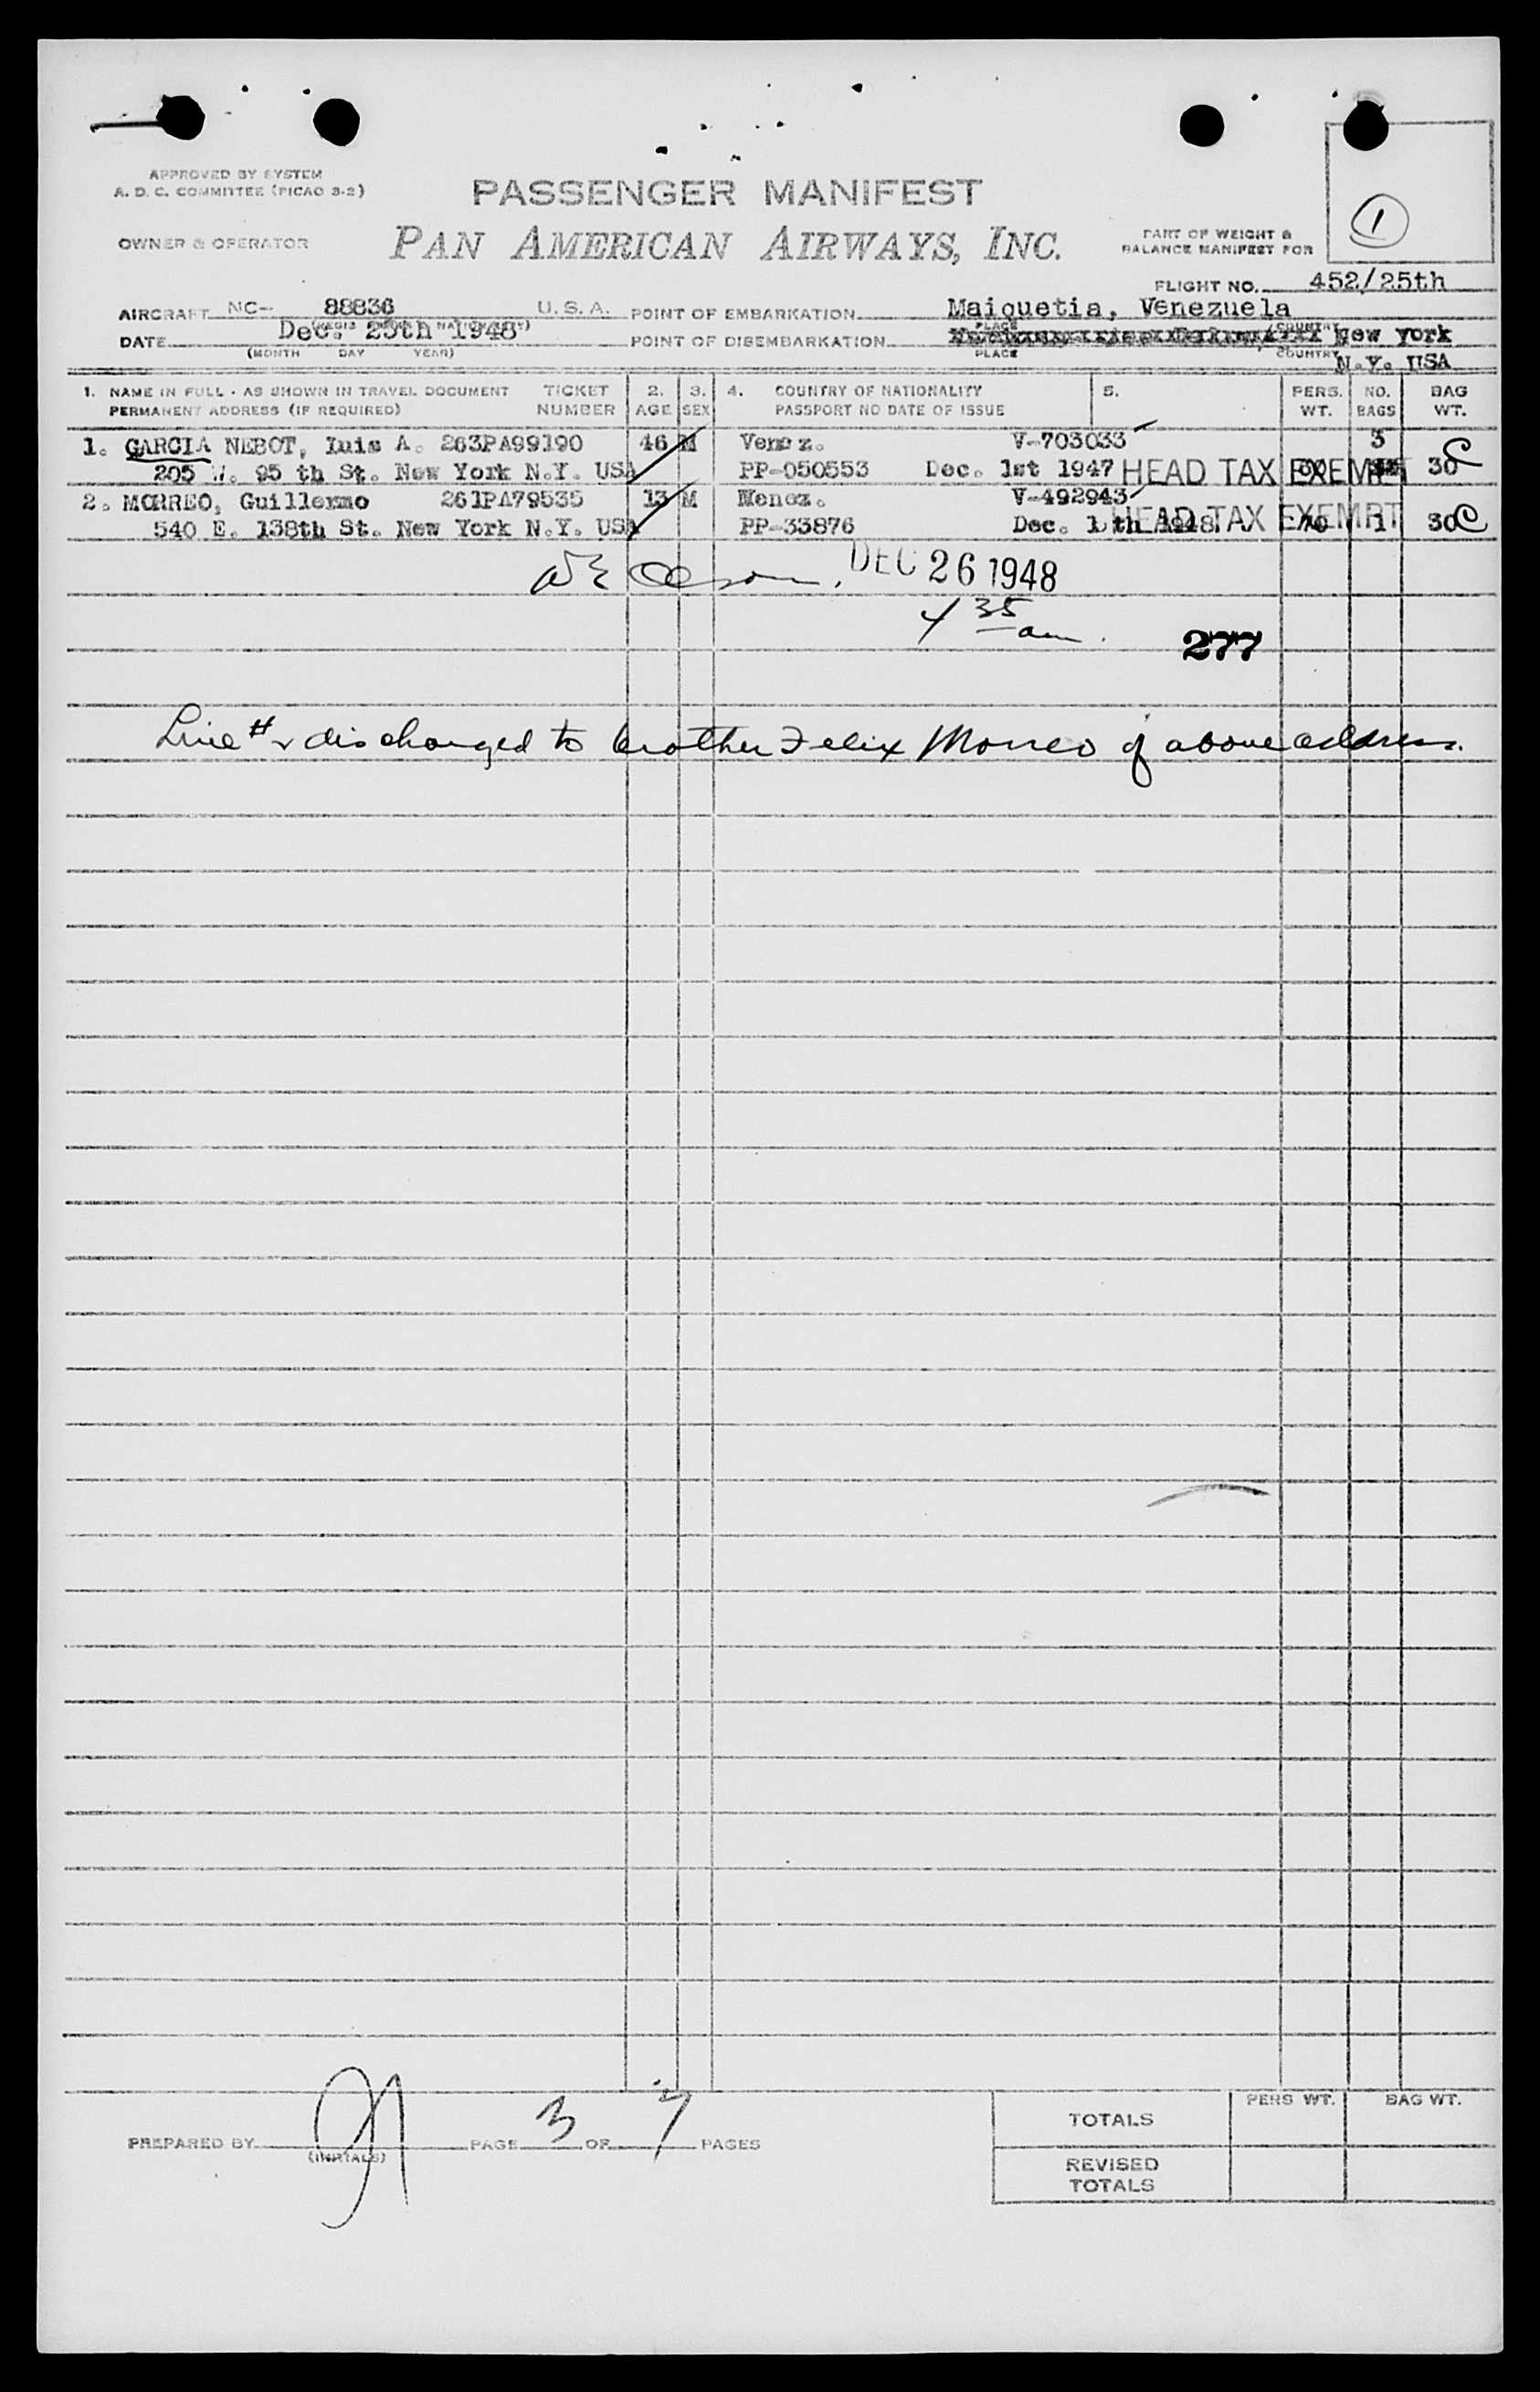 APPROVED BY SYSTEM
A. D. C. COMMITTEE (PICAO 3-2)
PASSENGER MANIFEST
OWNER & OPERATOR
PAN AMERICAN AIRWAYS, INC.
PART OF WEIGHT &
BALANCE MANIFEST FOR
1
FLIGHT NO. 452/25th
AIRCRAFT NC- 88836 U. S. A. POINT OF EMBARKATION Maiquetia, Venezuela
PLACE COUNTRY
DATE Dec. 25th 1948 POINT OF DISEMBARKATION New York
(MONTH DAY YEAR) PLACE COUNTRY N.Y. USA
1. NAME IN FULL - AS SHOWN IN TRAVEL DOCUMENT TICKET 2. 3. 4. COUNTRY OF NATIONALITY 5. PERS. NO. BAG
PERMANENT ADDRESS (IF REQUIRED) NUMBER AGE SEX PASSPORT NO DATE OF ISSUE WT. BAGS WT.
1. GARCIA NEBOT, Luis A. 263PA99190 46 M Venez. V-703033 3
205 W. 95 th St. New York N.Y. USA PP-050553 Dec. 1st 1947 HEAD TAX EXEMPT 30 C
2. MORREO, Guillermo 261PA79535 13 M Menoz. V-492943
540 E. 138th St. New York N.Y. USA PP-33876 Dec. 1 th 1948 HEAD TAX EXEMPT 70 1 30 C
DEC 26 1948
4 35 am.
277
Line # 2 discharged to brother Felix Morreo of above address.
PREPARED BY (INITIALS) PAGE 3 OF 7 PAGES
PERS WT. BAG WT.
TOTALS
REVISED
TOTALS